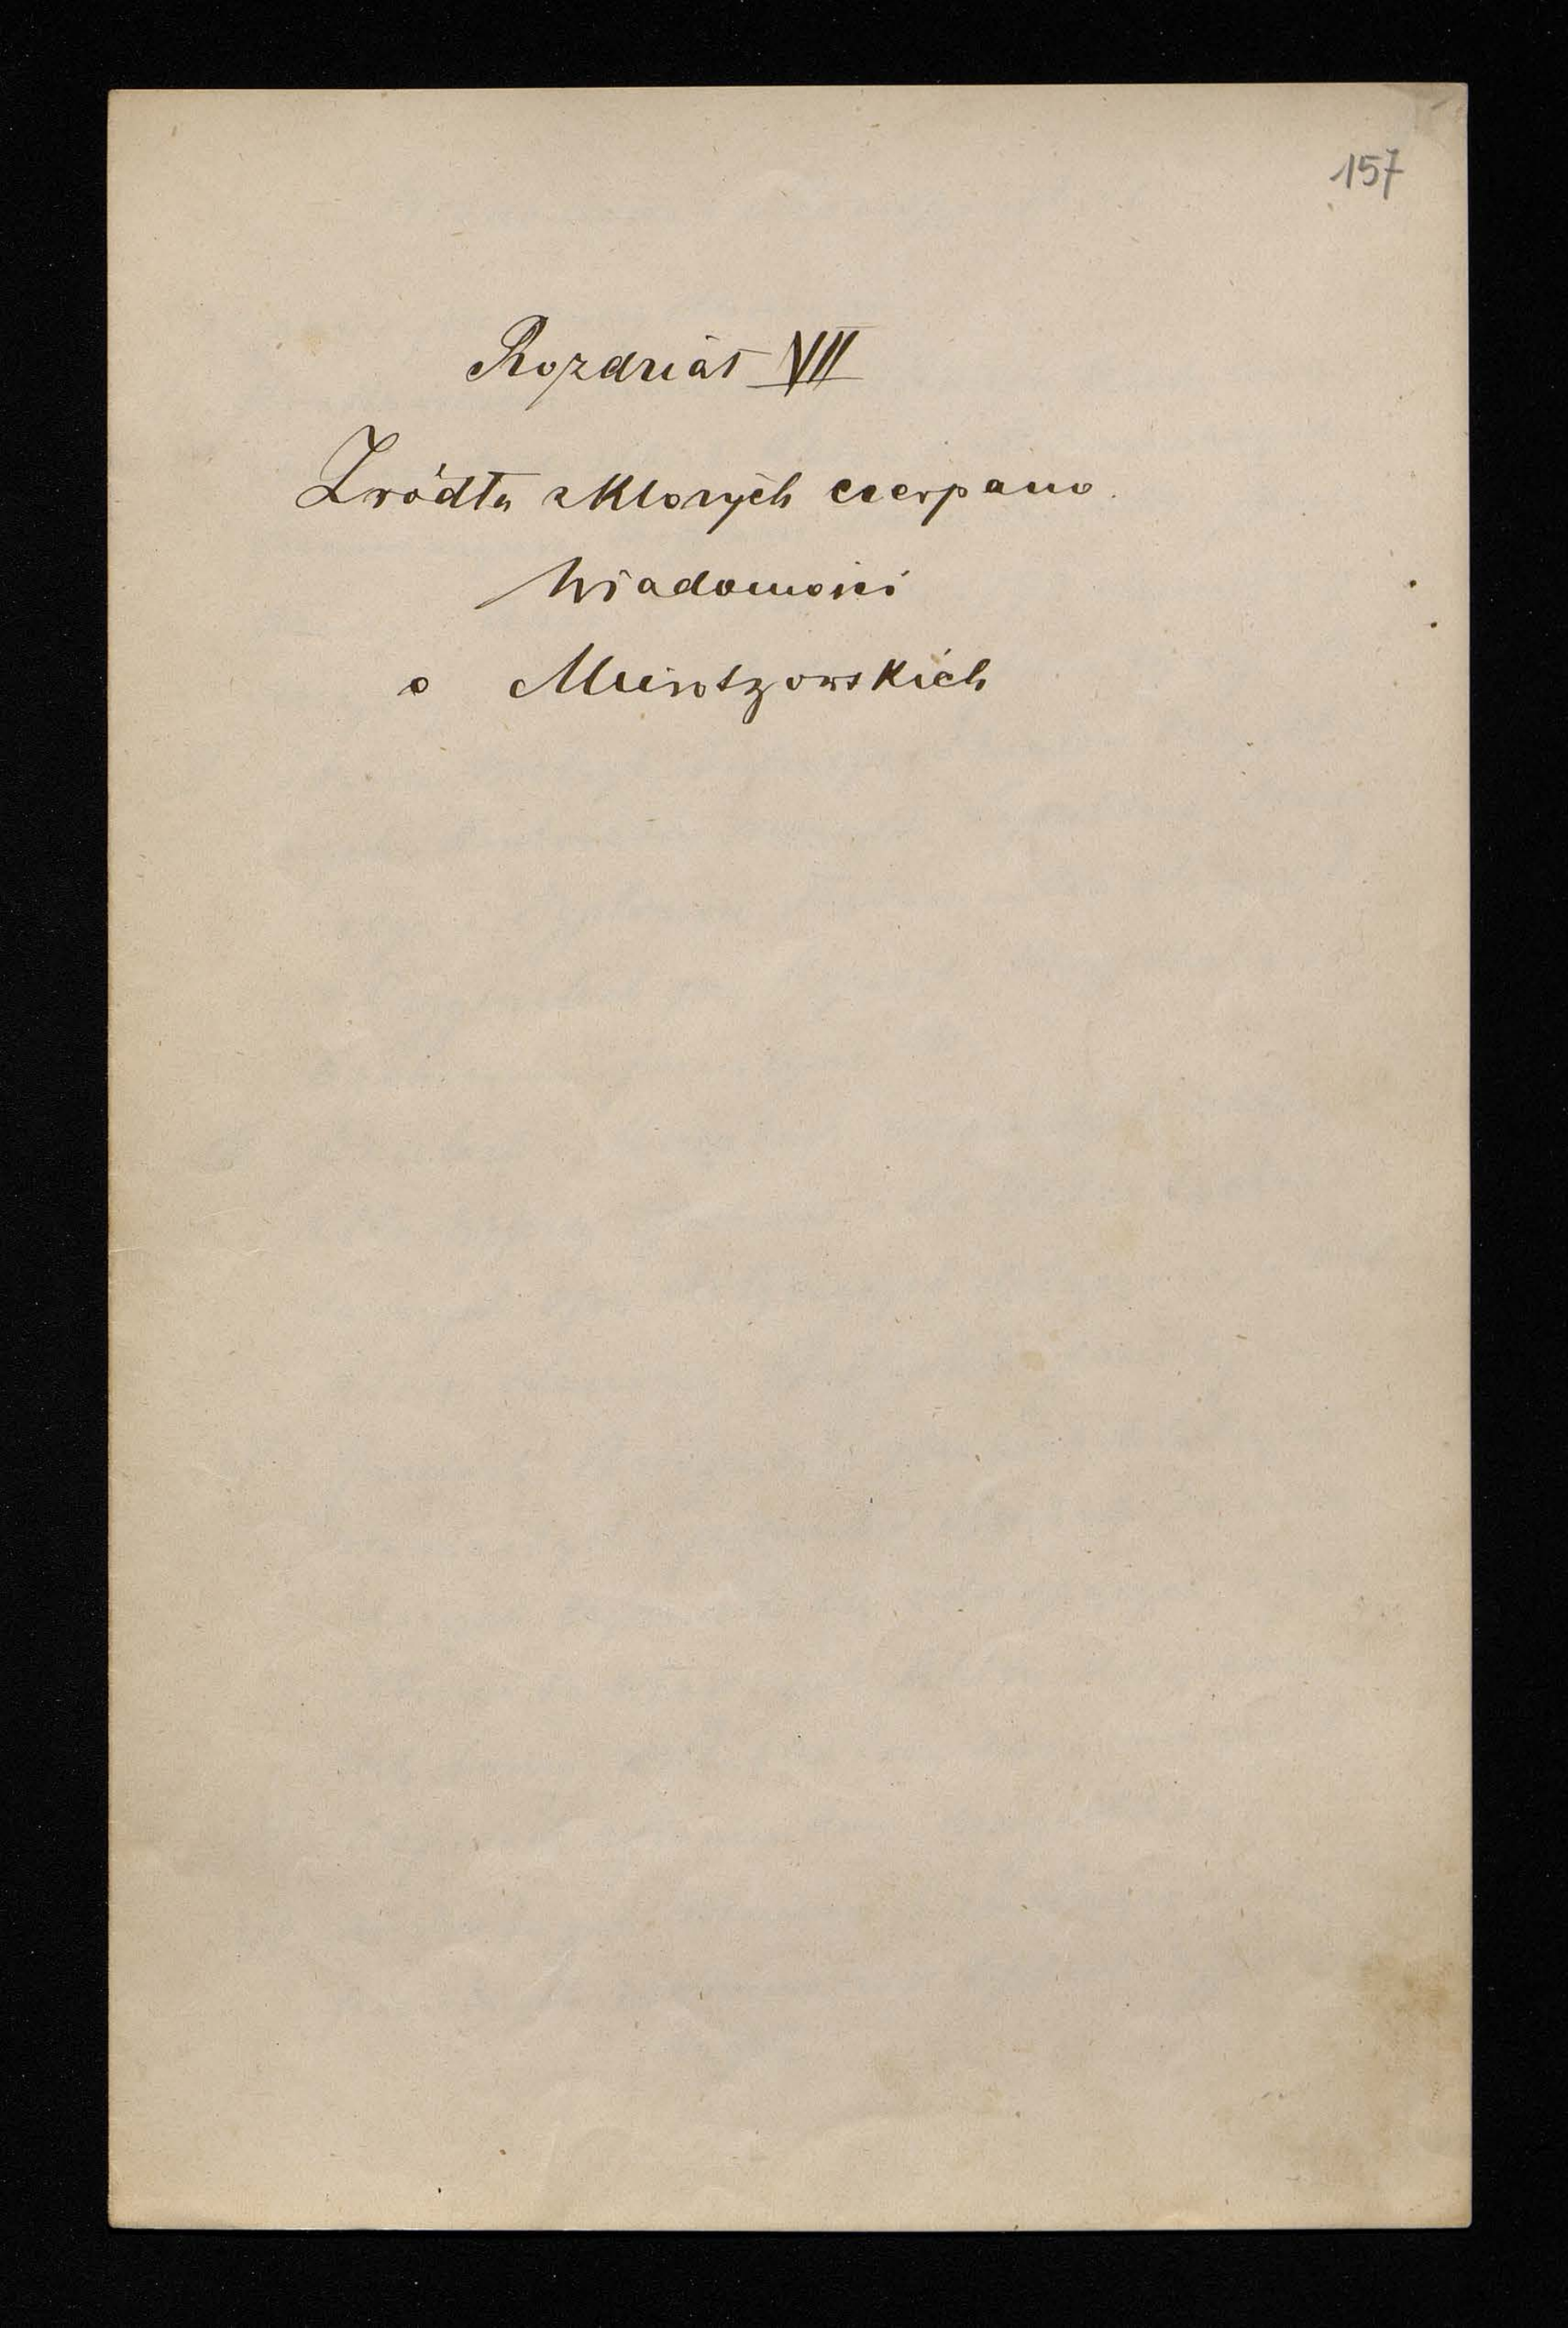 157
Rozdział VII
Źródła z których czerpano
Wiadomości
o Mieroszowskich